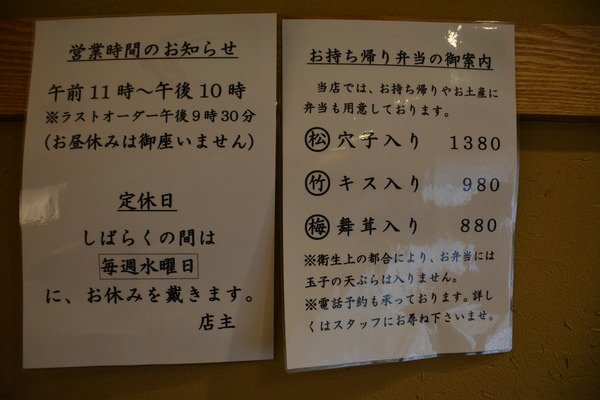 営業時間のお知らせ
午前11時〜午後10時
※ラストオーダー午後9時30分
(お昼休みは御座いません)
定休日
しばらくの間は
毎週水曜日
に、お休みを戴きます。
店主
お持ち帰り弁当の御案内
当店では、お持ち帰りやお土産に
弁当も用意しております。
松 穴子入り 1380
竹 キス入り 980
梅 舞茸入り 880
※衛生上の都合により、お弁当には
玉子の天ぷらは入りません。
※電話予約も承っております。詳し
くはスタッフにお尋ね下さいませ。